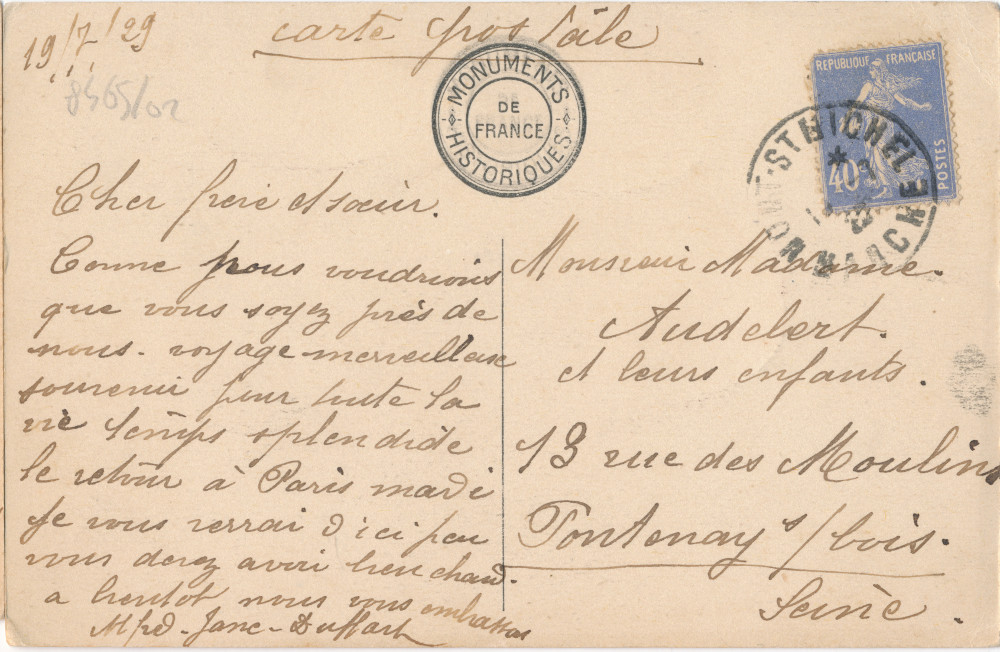 19/7/29
carte postale
8465/02
MONUMENTS HISTORIQUES
DE
FRANCE
REPUBLIQUE FRANÇAISE
POSTES
40c
ST MICHEL
MANCHE
Cher frère et sœur.
Comme nous voudrions
que vous soyez près de
nous. voyage merveilleuse
souvenir pour toute la
vie temps splendide
le retour à Paris mardi
Je vous verrai d'ici peu
vous devez avoir bien chaud.
a bientot nous vous embrassons
Alfred - Jane - Duffart
Monsieur Madame.
Audebert.
et leurs enfants.
13 rue des Moulins
Fontenay s/bois.
Seine.